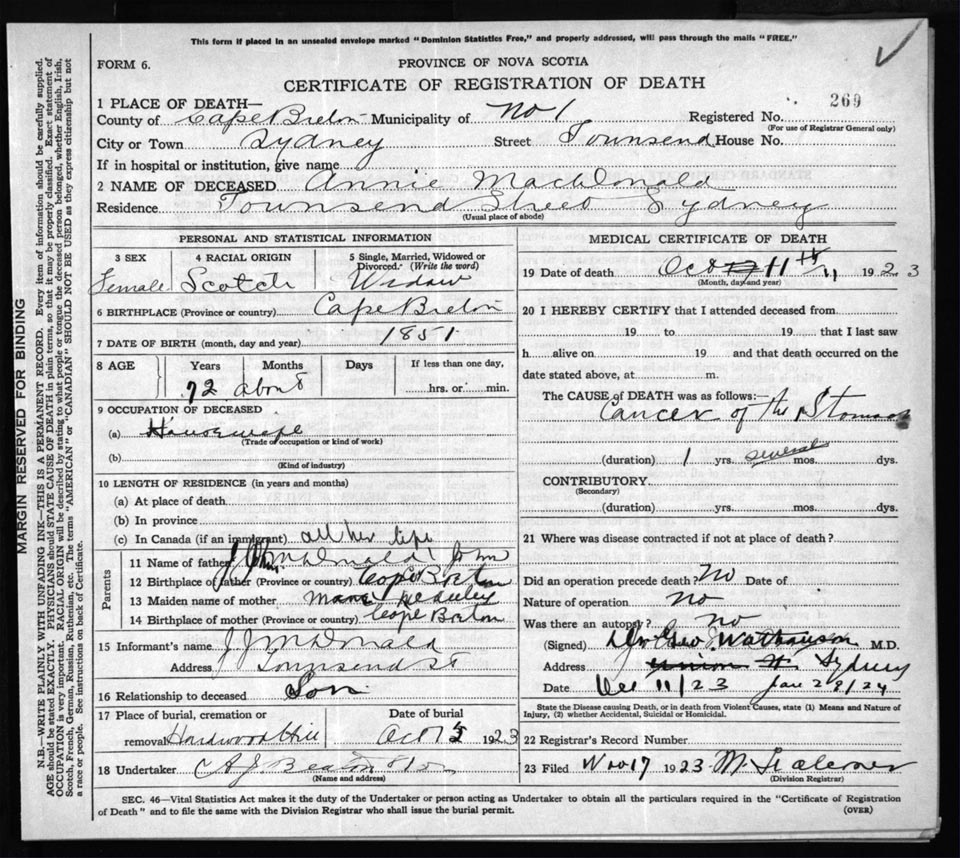 This form if placed in an unsealed envelope marked "Dominion Statistics Free," and properly addressed, will pass through the mails "FREE."
FORM 6.
PROVINCE OF NOVA SCOTIA
CERTIFICATE OF REGISTRATION OF DEATH
269
1 PLACE OF DEATH—
County of Cape Breton Municipality of No 1 Registered No.
(For use of Registrar General only)
City or Town Sydney Street Townsend House No.
If in hospital or institution, give name
2 NAME OF DECEASED Annie MacDonald
Residence Townsend Street Sydney
(Usual place of abode)
PERSONAL AND STATISTICAL INFORMATION
3 SEX 4 RACIAL ORIGIN 5 Single, Married, Widowed or Divorced. (Write the word)
Female Scotch Widow
6 BIRTHPLACE (Province or country) Cape Breton
7 DATE OF BIRTH (month, day and year) 1851
8 AGE Years Months Days If less than one day,
72 about hrs. or min.
9 OCCUPATION OF DECEASED
(a) Housewife
(Trade or occupation or kind of work)
(b)
(Kind of industry)
10 LENGTH OF RESIDENCE (in years and months)
(a) At place of death
(b) In province
(c) In Canada (if an immigrant) all her life
Parents
11 Name of father McDonald John
12 Birthplace of father (Province or country) Cape Breton
13 Maiden name of mother
14 Birthplace of mother (Province or country) Cape Breton
15 Informant's name J J McDonald
Address Townsend St
16 Relationship to deceased Son
17 Place of burial, cremation or Date of burial
removal Hardwood Hill Oct 1923
18 Undertaker A J Beaton & Son
(Name and address)
MEDICAL CERTIFICATE OF DEATH
19 Date of death Oct 11th 1923
(Month, day and year)
20 I HEREBY CERTIFY that I attended deceased from
19 to 19 that I last saw
h alive on 19 and that death occurred on the
date stated above, at m.
The CAUSE OF DEATH was as follows:
Cancer of the Stomach
(duration) 1 yrs. several mos. dys.
CONTRIBUTORY
(Secondary)
(duration) yrs. mos. dys.
21 Where was disease contracted if not at place of death?
Did an operation precede death? No Date of
Nature of operation no
Was there an autopsy? no
(Signed) Dr Geo M.D.
Address Union St Sydney
Date 11/23 Jan 28/24
State the Disease causing Death, or in death from Violent Causes, state (1) Means and Nature of
Injury, (2) whether Accidental, Suicidal or Homicidal.
22 Registrar's Record Number
23 Filed Nov 17 1923
(Division Registrar)
SEC. 46—Vital Statistics Act makes it the duty of the Undertaker or person acting as Undertaker to obtain all the particulars required in the "Certificate of Registration
of Death" and to file the same with the Division Registrar who shall issue the burial permit.
(OVER)
MARGIN RESERVED FOR BINDING
N.B.—WRITE PLAINLY WITH UNFADING INK—THIS IS A PERMANENT RECORD. Every item of information should be carefully supplied.
AGE should be stated EXACTLY. PHYSICIANS should STATE CAUSE OF DEATH in plain terms, so that it may be properly classified. Exact statement of
OCCUPATION is very important. RACIAL ORIGIN will be described by stating to what people or tongue the deceased person belonged, whether English, Irish,
Scotch, French, German, Russian, Ruthenian, etc. The terms "AMERICAN" or "CANADIAN" SHOULD NOT BE USED as they express citizenship but not
a race or people. See instructions on back of Certificate.